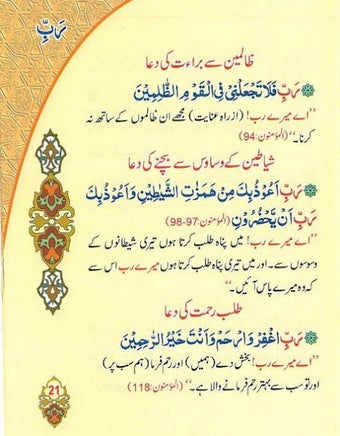 رَبِّ
ظالمین سے براءت کی دعا
رَبِّ فَلَا تَجْعَلْنِیْ فِی الْقَوْمِ الظّٰلِمِیْنَ
’’اے میرے رب! (ازراہ عنایت) مجھے ان ظالموں کے ساتھ نہ
کرنا۔‘‘ (المؤمنون:94)
شیاطین کے وساوس سے بچنے کی دعا
رَبِّ اَعُوْذُ بِكَ مِنْ هَمَزٰتِ الشَّیٰطِیْنِ وَاَعُوْذُ بِكَ
رَبِّ اَنْ یَّحْضُرُوْنِ (المؤمنون:97-98)
’’اے میرے رب! میں پناہ طلب کرتا ہوں تیری شیطانوں کے
وسوسوں سے۔ اور میں تیری پناہ طلب کرتا ہوں میرے رب اس سے
کہ وہ میرے پاس آئیں۔‘‘
طلب رحمت کی دعا
رَبِّ اغْفِرْ وَارْحَمْ وَاَنْتَ خَیْرُ الرّٰحِمِیْنَ
’’اے میرے رب! بخش دے (ہمیں) اور رحم فرما (ہم سب پر)
اور تو سب سے بہتر رحم فرمانے والا ہے۔‘‘ (المؤمنون:118)
21